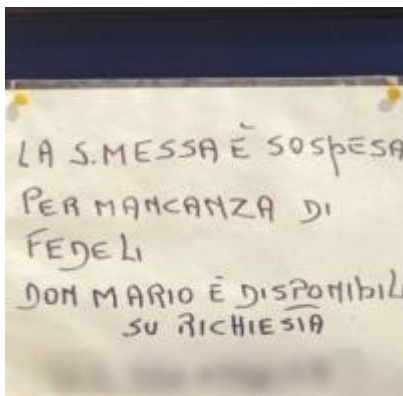 LA S.MESSA È SOSPESA
PER MANCANZA DI
FEDELI
DON MARIO È DISPONIBIL
SU RICHIESTA